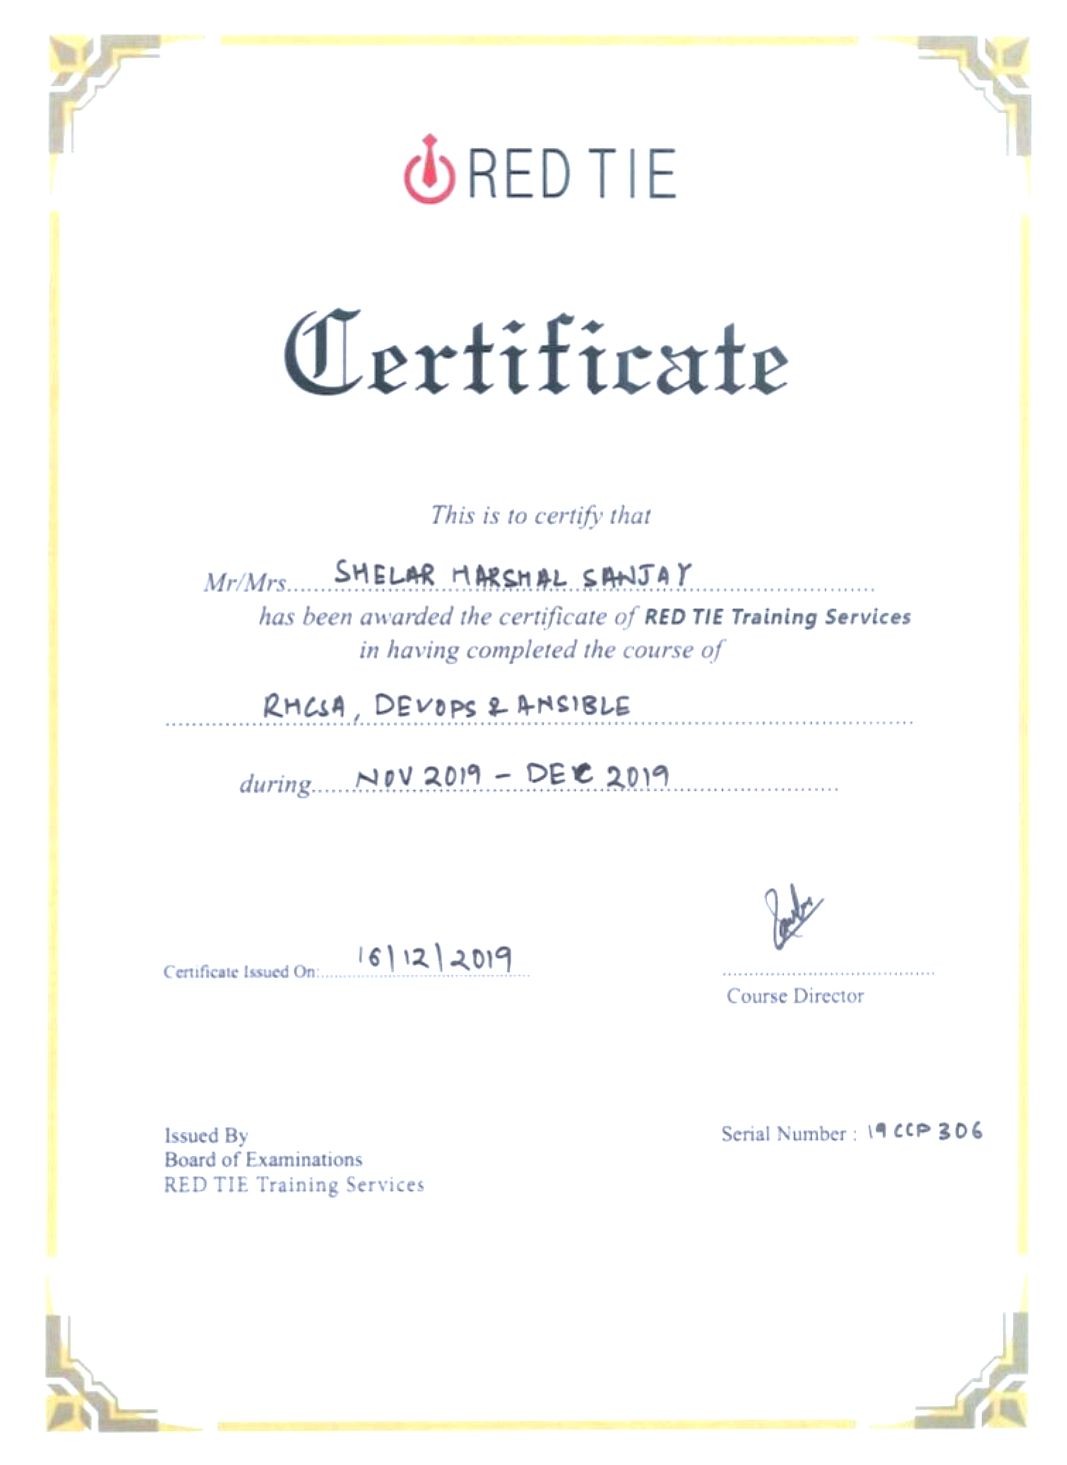 RED TIE
Certificate
This is to certify that
Mr/Mrs....SHELAR HARSHAL SANJAY....
has been awarded the certificate of RED TIE Training Services
in having completed the course of
RHCSA, DEVOPS & ANSIBLE
during....NOV 2019 - DEC 2019....
Certificate Issued On:....16/12/2019....
Course Director
Issued By
Board of Examinations
RED TIE Training Services
Serial Number : 19CCP306